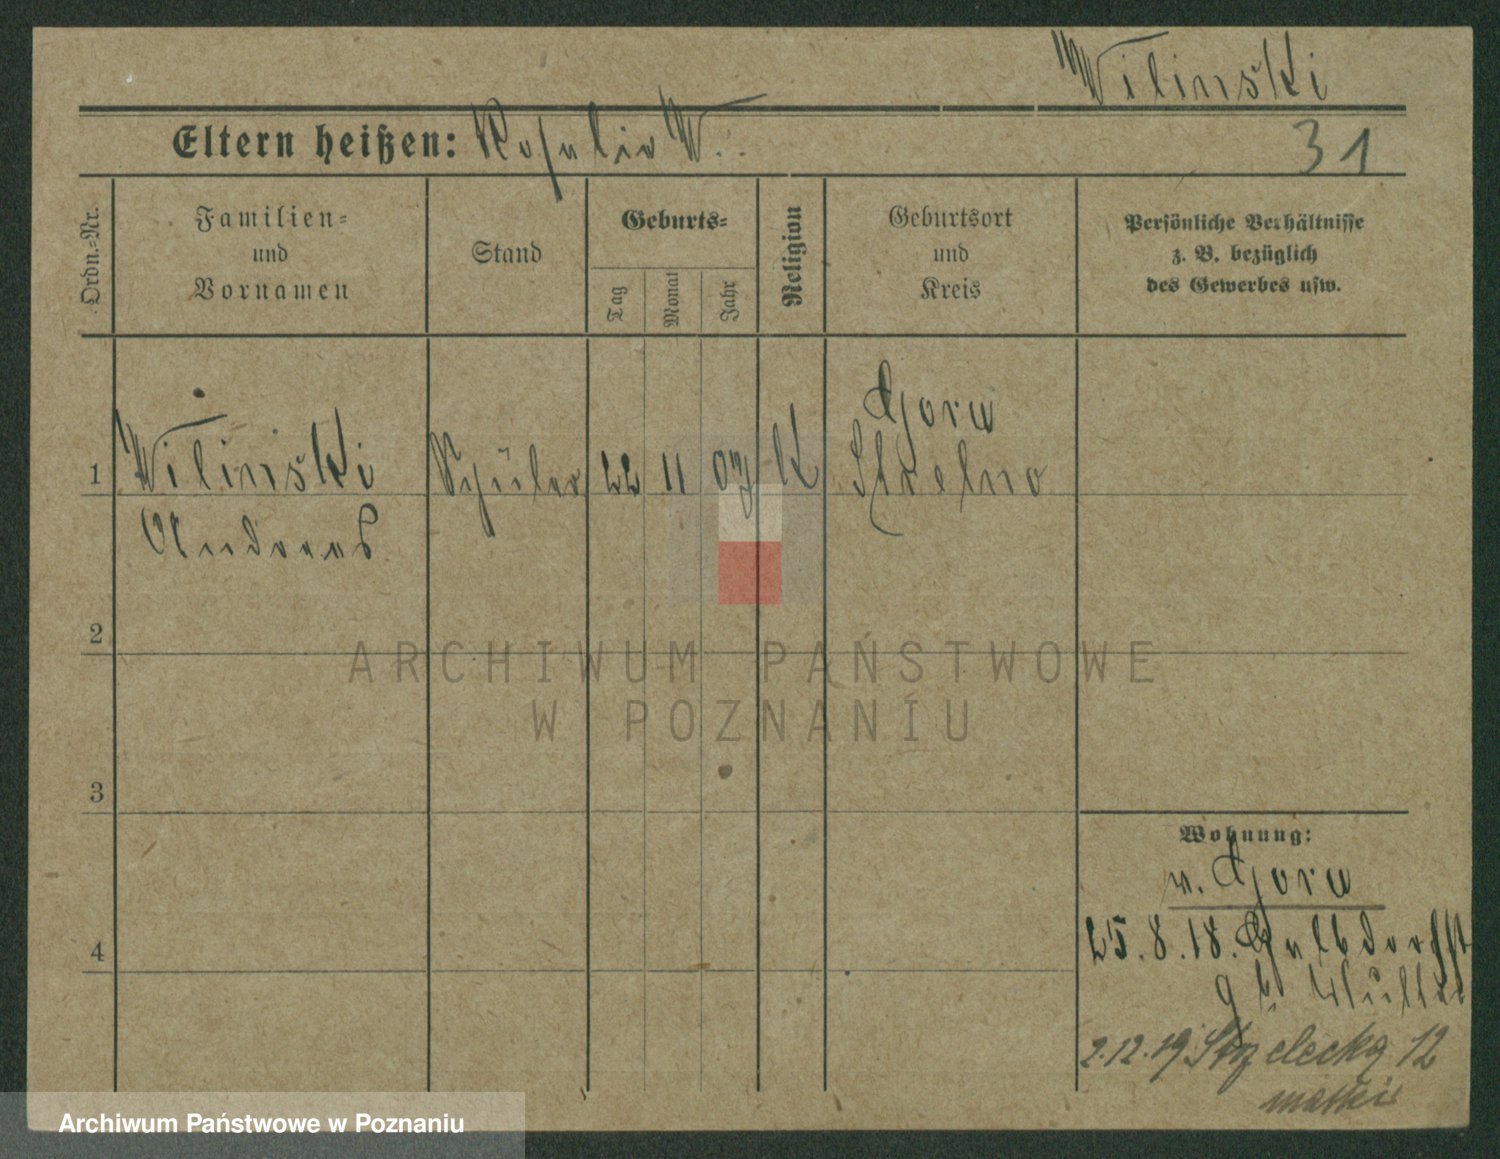 Wilinski
Eltern heißen: Rosalie W..
31
Ordn.=Nr.
Familien=
und
Vornamen
Stand
Geburts=
Tag
Monat
Jahr
Religion
Geburtsort
und
Kreis
Persönliche Verhältnisse
z. B. bezüglich
des Gewerbes usw.
Gora
1 Wilinski Schüler 22 11 07 K Strelno
Andreas
2
ARCHIWUM PAŃSTWOWE
W POZNANIU
3
Wohnung:
v. Gora
4
25.8.18. Halbdorfst
9 b. Mutter
2.12.19 Strzelecka 12
matki
Archiwum Państwowe w Poznaniu